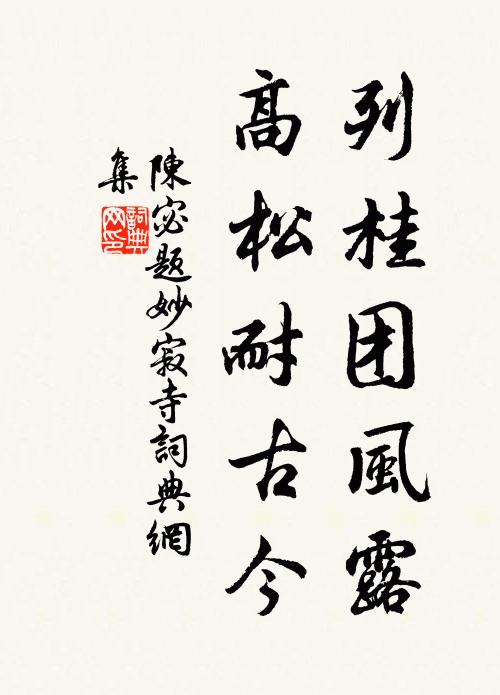 列桂团風露
高松耐古今
陳宓题妙寂寺詞典網
集
詞典網印